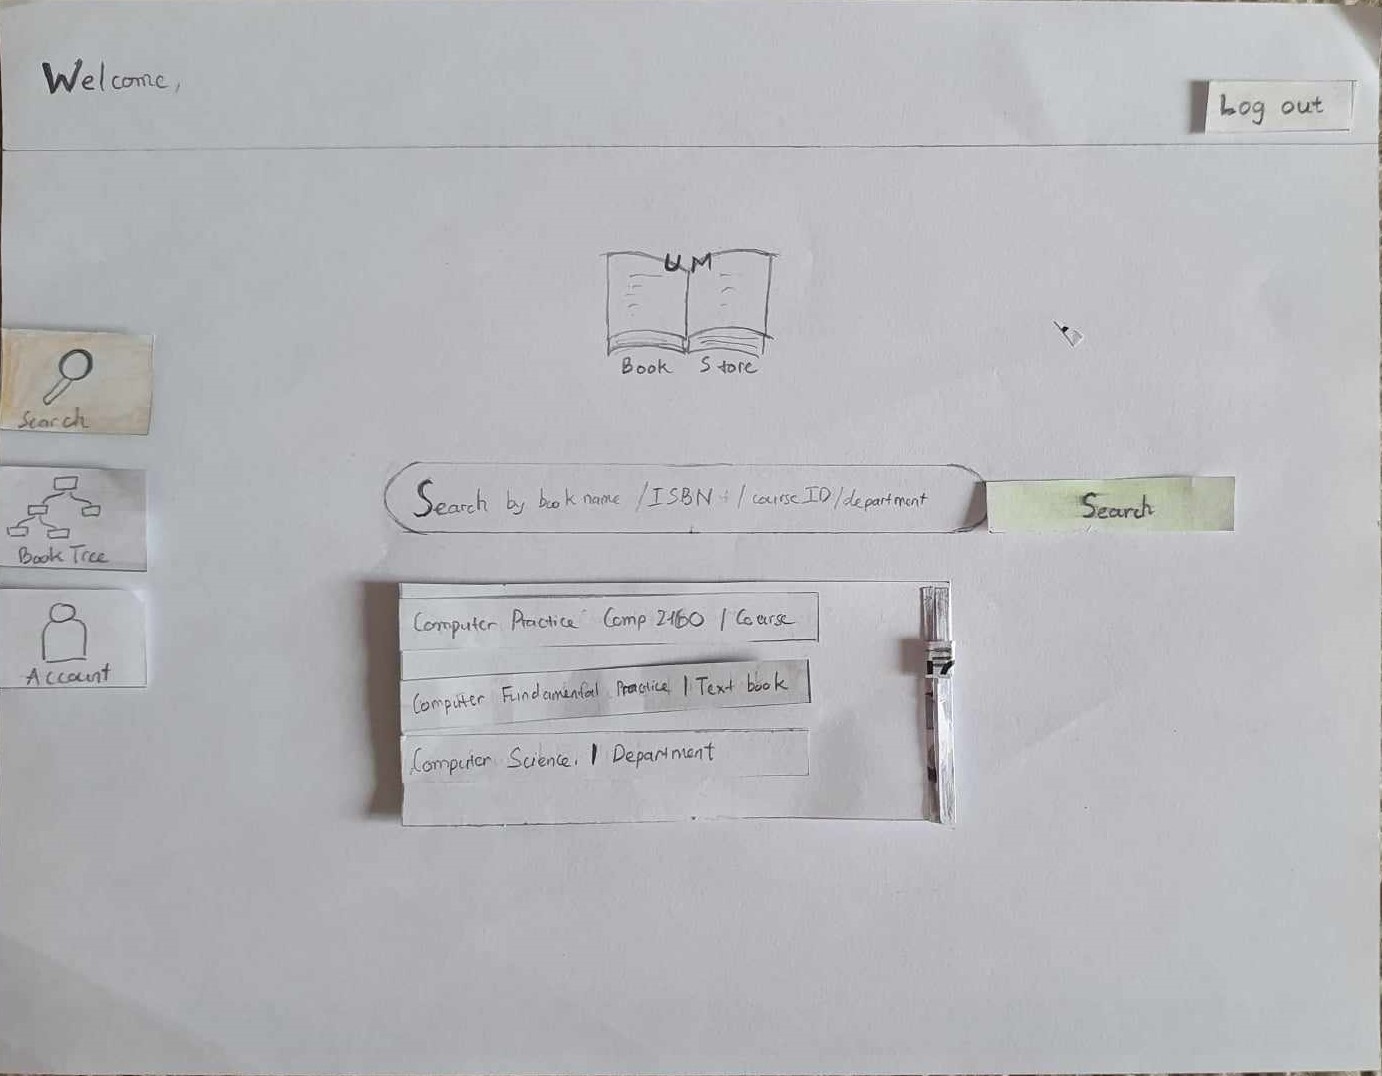 Welcome,
Log out
UM
Book Store
Search
Book Tree
Account
Search by book name / ISBN / course ID / department
Search
Computer Practice Comp 2160 / Course
Computer Fundamental Practice | Text book
Computer Science. | Department